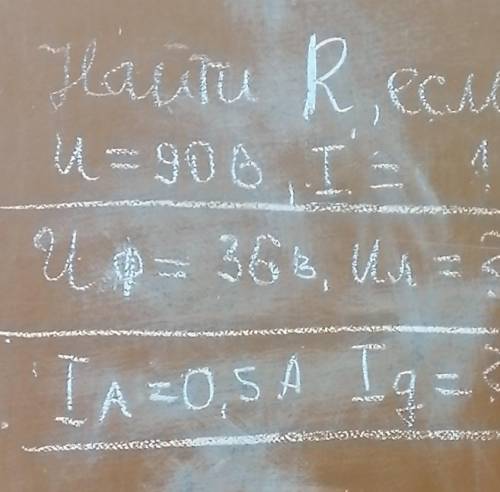 Найти R, если
U = 90 В, I =
Uф = 36 в, Uл = ?
I A = 0,5 A I g = ?